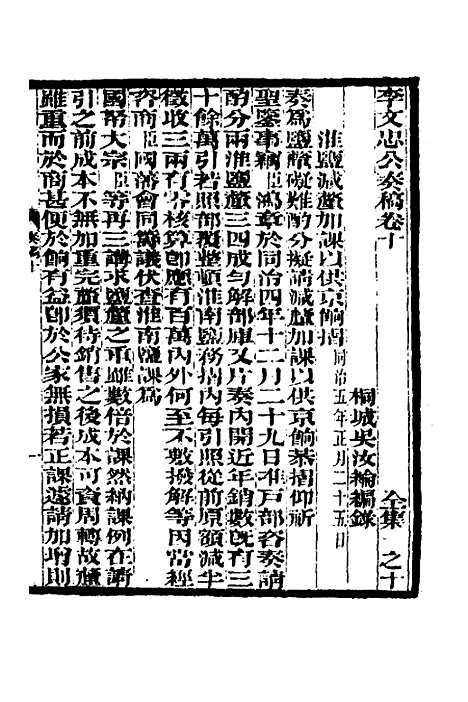 李文忠公奏稿卷十 全集之十
桐城吳汝綸編錄
淮鹽減釐加課以供京餉摺同治五年正月二十五日
奏爲鹽釐礙難酌分擬請減釐加課以供京餉恭摺仰祈
聖鑒事竊臣鴻章於同治四年十二月二十九日准戶部咨奏請
酌分兩淮鹽釐三四成勻解部庫又片奏內開近年銷數旣有三
十餘萬引若照部覆整頓淮南鹽務摺內每引照從前原額減半
徵收三兩有零核算卽應有百萬內外何至不敷撥解等因當經
咨商臣國藩會同籌議伏查淮南鹽課爲
國帑大宗臣等再三講求鹽釐之重雖數倍於課然納課例在請
引之前成本不無加重完釐須待銷售之後成本可資周轉故釐
雖重而於商甚便於餉有益卽於公家無損若正課遽請加增則